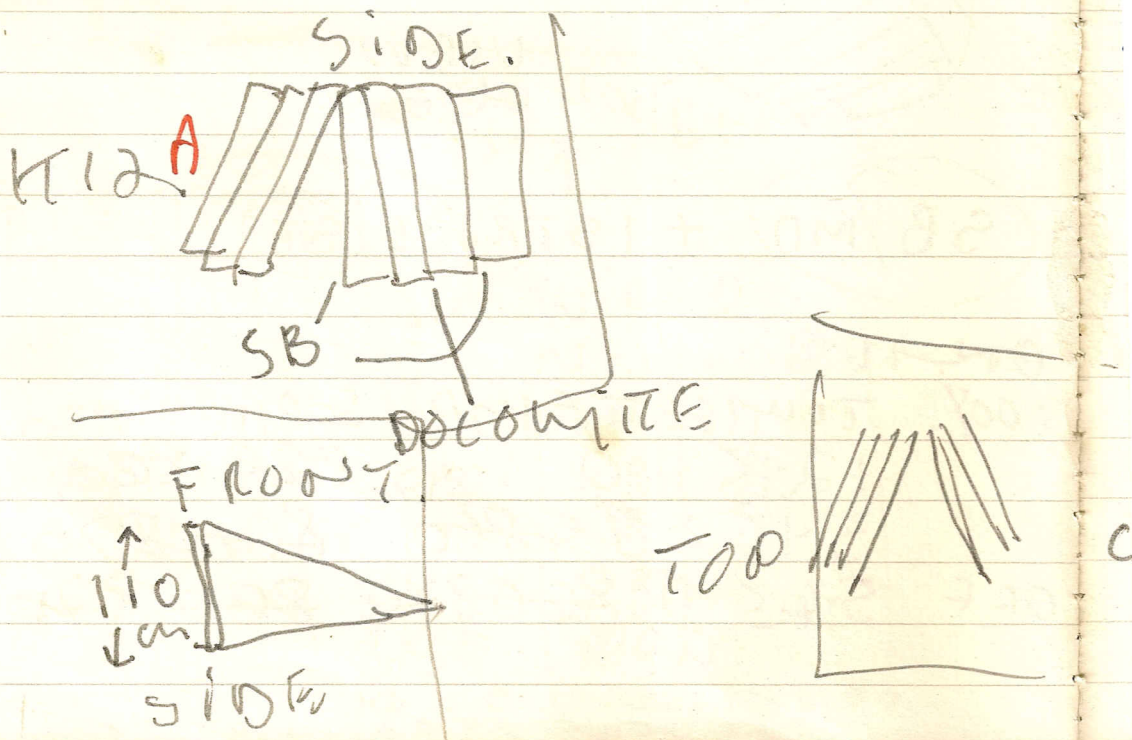 SIDE.
K12 A
SB
DOLOMITE
FRONT
110
cm
SIDE
TOP
C